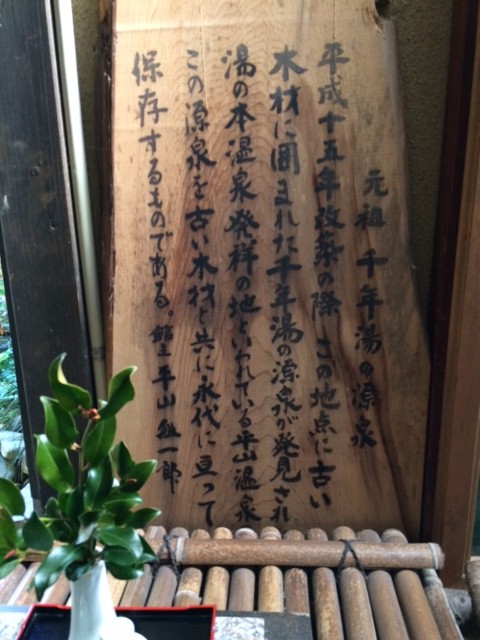 元祖 千年湯の源泉
平成十五年改築の際 この地点に古い
木材に囲まれた千年湯の源泉が発見され
湯の本温泉発祥の地といわれている平山温泉
この源泉を古い木材と共に永代に亘って
保存するものである。館主 平山 一郎